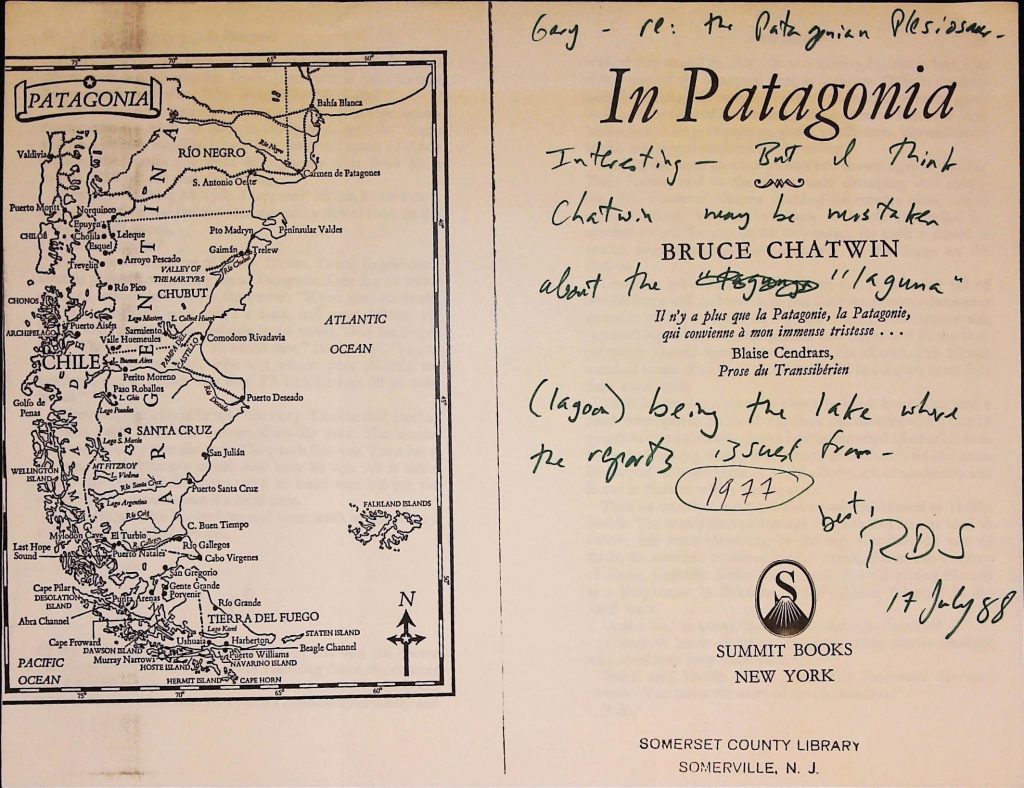 75°
70°
65°
60°
PATAGONIA
Bahía Blanca
Valdivia
RÍO NEGRO
Río Negro
Carmen de Patagones
S. Antonio Oeste
Puerto Montt
Norquinco
40°
Epuyen
CHILOE
Cholila
Leleque
Pto Madryn
Peninsular Valdes
Esquel
Gaimán
Trelew
Trevelin
Arroyo Pescado
Río Chubut
VALLEY OF
THE MARTYRS
Río Pico
CHUBUT
CHONOS
ARCHIPELAGO
Lago Musters
L. Colhué Huapi
ATLANTIC
OCEAN
Puerto Aisén
Sarmiento
Valle Huemeules
PAMPA DEL
CASTILLO
Comodoro Rivadavia
CHILE
L. Buenos Aires
ANDES
ARGENTINA
Perito Moreno
Paso Roballos
L. Ghio
Río Deseado
Golfo de
Penas
Lago Posadas
Puerto Deseado
45°
SANTA CRUZ
Lago S. Martín
San Julián
MT FITZROY
L. Viedma
WELLINGTON
ISLAND
Río Santa Cruz
Puerto Santa Cruz
Lago Argentino
FALKLAND ISLANDS
Río Coig
C. Buen Tiempo
Mylodon Cave
El Turbio
R. Gallegos
Río Gallegos
Last Hope
Sound
Puerto Natales
Cabo Vírgenes
50°
San Gregorio
Cape Pilar
Gente Grande
DESOLATION
ISLAND
Punta Arenas
Porvenir
Río Grande
N
Abra Channel
TIERRA DEL FUEGO
Lago Kami
Cape Froward
Ushuaia
Harberton
STATEN ISLAND
DAWSON ISLAND
Beagle Channel
Puerto Williams
PACIFIC
OCEAN
Murray Narrows
NAVARINO ISLAND
HOSTE ISLAND
HERMIT ISLAND
CAPE HORN
75°
70°
65°
60°
Gary - re: the Patagonian Plesiosaur -
In Patagonia
Interesting - But I think
Chatwin may be mistaken
BRUCE CHATWIN
about the "laguna"
Il n'y a plus que la Patagonie, la Patagonie,
qui convienne à mon immense tristesse . . .
Blaise Cendrars,
Prose du Transsibérien
(lagoon) being the lake where
the reports issued from -
1977
best,
RDS
17 July 88
S
SUMMIT BOOKS
NEW YORK
SOMERSET COUNTY LIBRARY
SOMERVILLE, N. J.